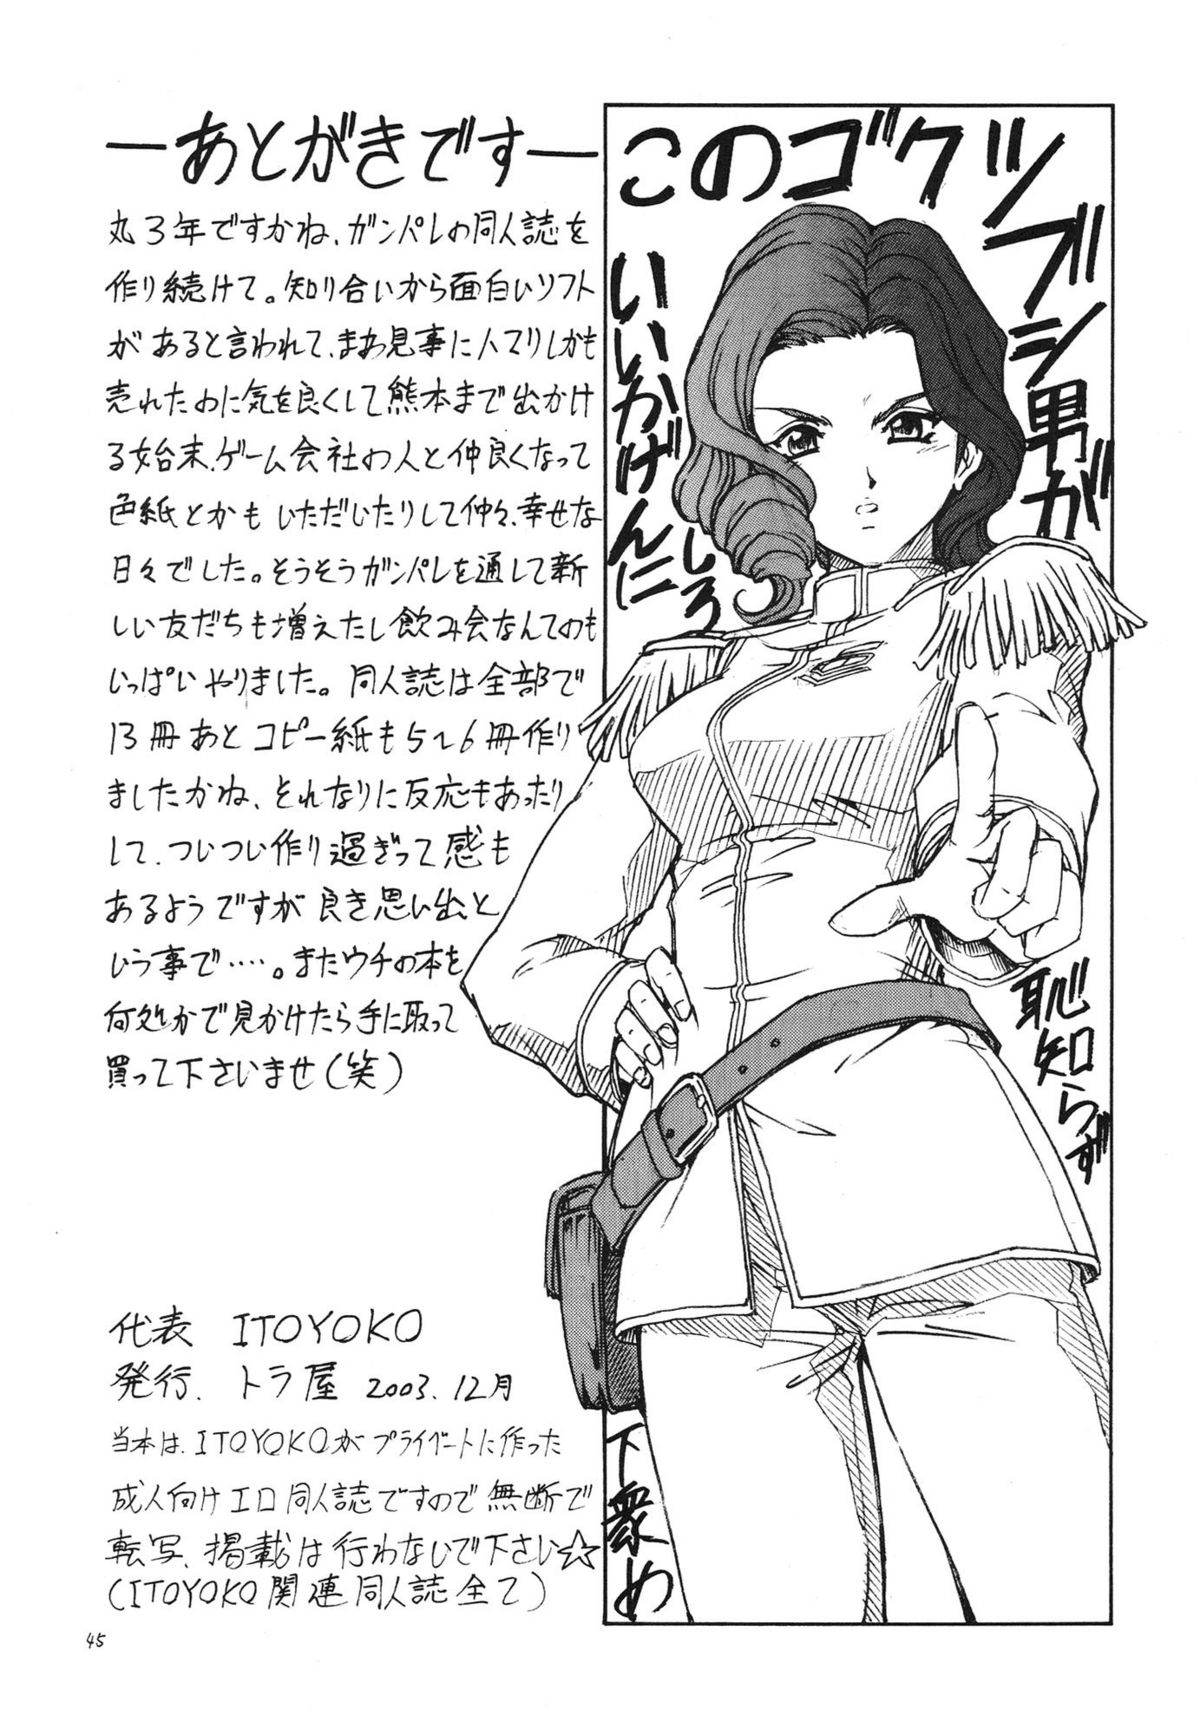 ―あとがきです―
丸3年ですかね、ガンパレの同人誌を
作り続けて。知り合いから面白いソフト
があると言われて、まあ見事にハマりしかも
売れたのに気を良くして熊本まで出かけ
る始末、ゲーム会社の人と仲良くなって
色紙とかもいただいたりして仲々、幸せな
日々でした。そうそうガンパレを通して新
しい友だちも増えたし飲み会なんてのも
いっぱいやりました。同人誌は全部で
13冊あとコピー紙も5〜6冊作り
ましたかね、それなりに反応もあったり
して、ついつい作り過ぎって感も
あるようですが良き思い出と
いう事で‥‥。またウチの本を
何処かで見かけたら手に取って
買って下さいませ(笑)
代表 ITOYOKO
発行、トラ屋 2003.12月
当本は、ITOYOKOがプライベートに作った
成人向けエロ同人誌ですので無断で
転写、掲載は行わないで下さい☆
(ITOYOKO関連同人誌全て)
45
このゴクツブシ男が
いいかげんに
しろ
恥知らず
下衆め